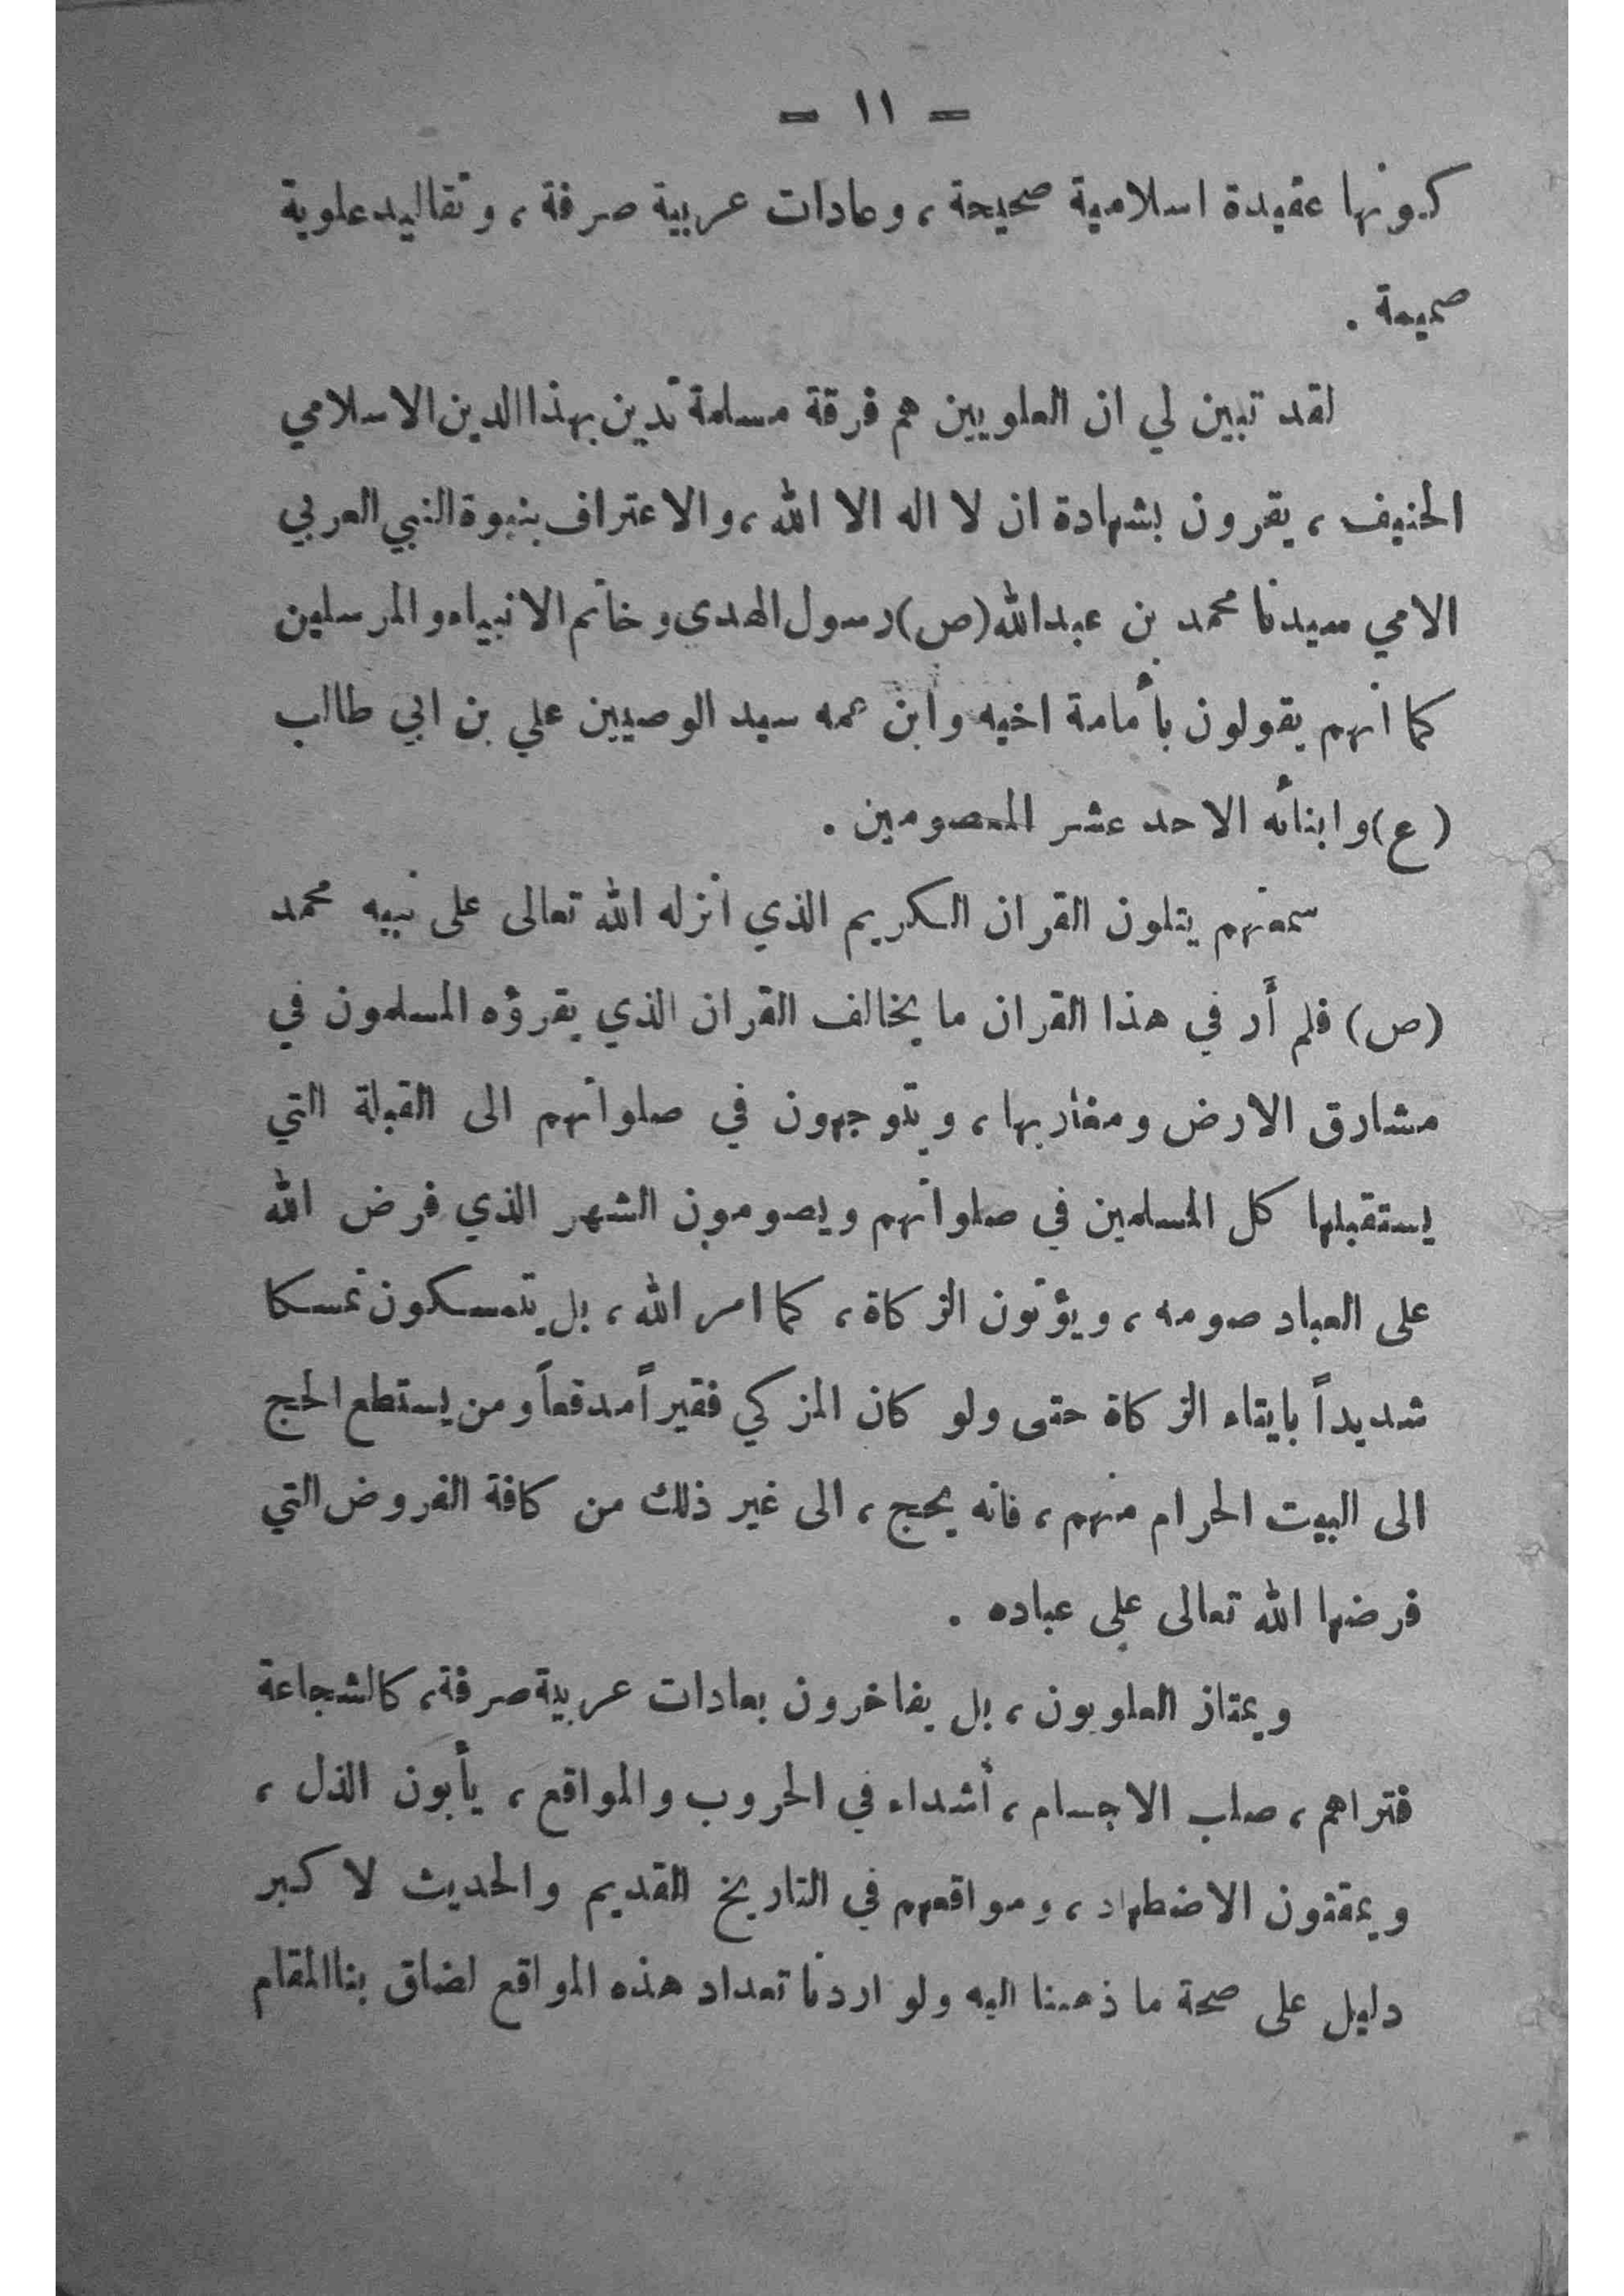 – ١١ –
كونها عقيدة اسلامية صحيحة ، وعادات عربية صرفة ، وتقاليد علوية
صميمة .
لقد تبين لي ان العلويين هم فرقة مسلمة تدين بهذا الدين الاسلامي
الحنيف ، يقرون بشهادة ان لا اله الا الله ، والاعتراف بنبوة النبي العربي
الامي سيدنا محمد بن عبدالله (ص) رسول الهدى وخاتم الانبياء والمرسلين
كما انهم يقولون بأمامة اخيه وابن عمه سيد الوصيين علي بن ابي طالب
(ع) وابنائه الاحد عشر المعصومين .
سمعتهم يتلون القران الكريم الذي انزله الله تعالى على نبيه محمد
(ص) فلم أر في هذا القران ما يخالف القران الذي يقرؤه المسلمون في
مشارق الارض ومغاربها ، ويتوجهون في صلواتهم الى القبلة التي
يستقبلها كل المسلمين في صلواتهم ويصومون الشهر الذي فرض الله
على العباد صومه ، ويؤتون الزكاة ، كما امر الله ، بل يتمسكون تمسكا
شديداً بايتاء الزكاة حتى ولو كان المزكي فقيراً مدقعاً ومن يستطع الحج
الى البيت الحرام منهم ، فانه يحج ، الى غير ذلك من كافة الفروض التي
فرضها الله تعالى على عباده .
ويمتاز العلويون ، بل يفاخرون بعادات عربية صرفة ، كالشجاعة
فتراهم ، صلب الاجسام ، أشداء في الحروب والمواقع ، يأبون الذل ،
ويمقتون الاضطهاد ، ومواقعهم في التاريخ القديم والحديث لاكبر
دليل على صحة ما ذهبنا اليه ولو اردنا تعداد هذه المواقع لضاق بنا المقام